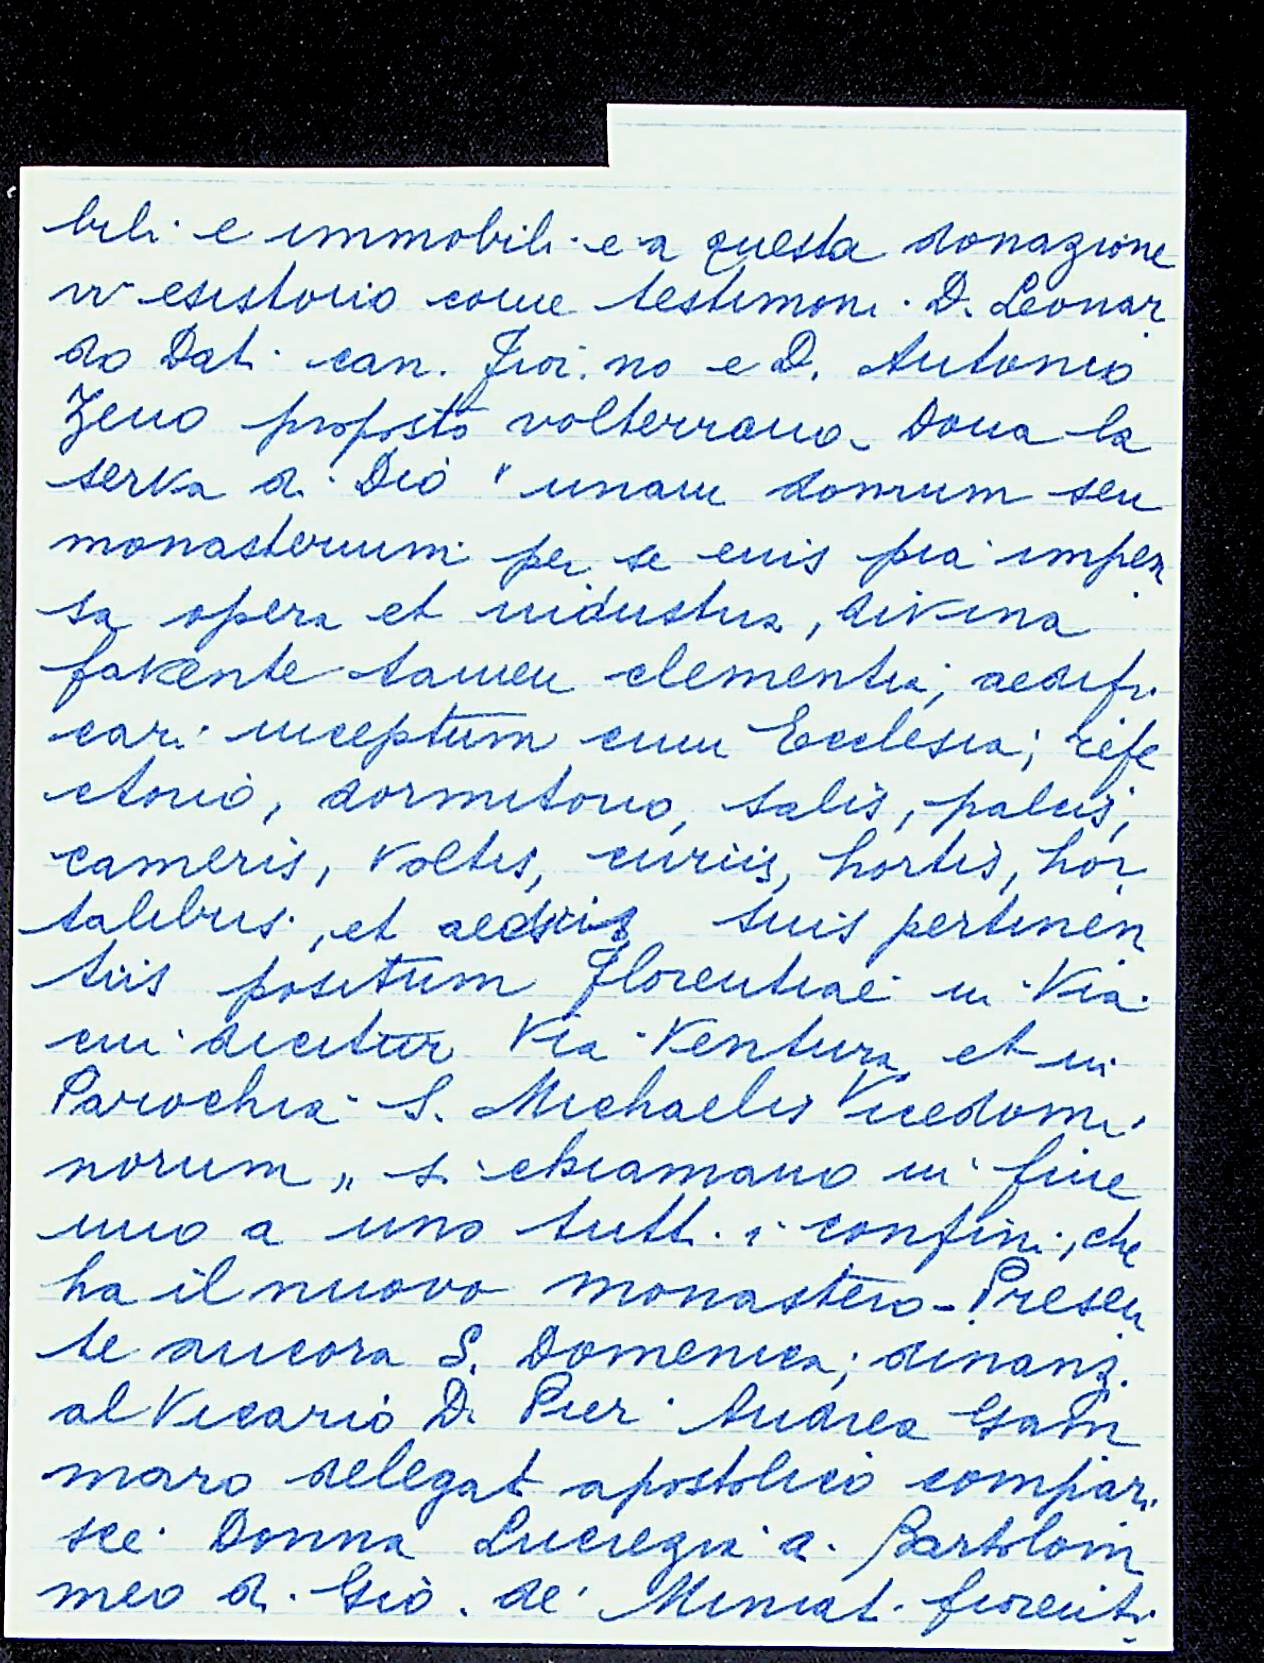 bili e immobili e a questa donazione
vv esistorio come testimoni. D. Leonar
do Dati can. Fior.no e D. Antonio
Zeno proposto volterrano. Dona la
serva di Dio "unam domum seu
monasterium per se eius pia impen
sa opera et industria, divina
favente tamen clementia, aedifi
cari inceptum cum Ecclesia, refe
ctorio, dormitorio, salis, palcis,
cameris, voltis, curiis, hortis, hor
talibus, et suis pertinen
tiis positum Florentiae in Via
cui dicitur Via Ventura et in
Parochia S. Michaelis Vicedomi
norum„ si chiamano in fine
uno a uno tutti i confini, che
ha il nuovo monastero - Presen
te ancora S. Domenica, dinanzi
al Vicario D. Pier Andrea Gam
maro delegat apostolico compari
sce Donna Lucrezia a. Bartolom
meo di Gio. de' Miniati fiorenti